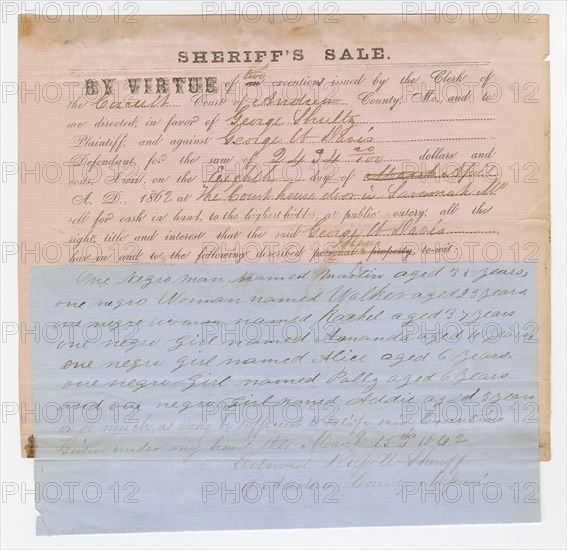 SHERIFF'S SALE.
BY VIRTUE of two an executions issued by the Clerk of
the Circuit Court of Andrew County, Mo., and to
me directed, in favor of George Shultz
Plaintiff, and against George W Davis
Defendant, for the sum of 2434 20/100 dollars and
costs, I will, on the Eighth day of March April
A. D., 1862 at The Court house door in Savannah Mo
sell for cash in hand, to the highest bidder, at public outcry; all the
right, title and interest that the said George W Davis
has in and to the following described personal property, to-wit
One Negro man named Martin aged years,
one negro Woman named Walker aged 25 years
one negro woman named Rachel aged 37 years
one negro girl named Amanda aged years
one negro girl named Alice aged 6 years,
one negro Girl named Polly aged 6 years
and one negro Girl named Addie aged 3 years
or so much as may be sufficient to satisfy said
Given under my hand this March 15th 1862
Sheriff
County
PHOTO12